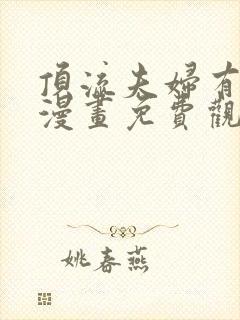 頂流夫婦有
漫畫免費觀
姚春燕